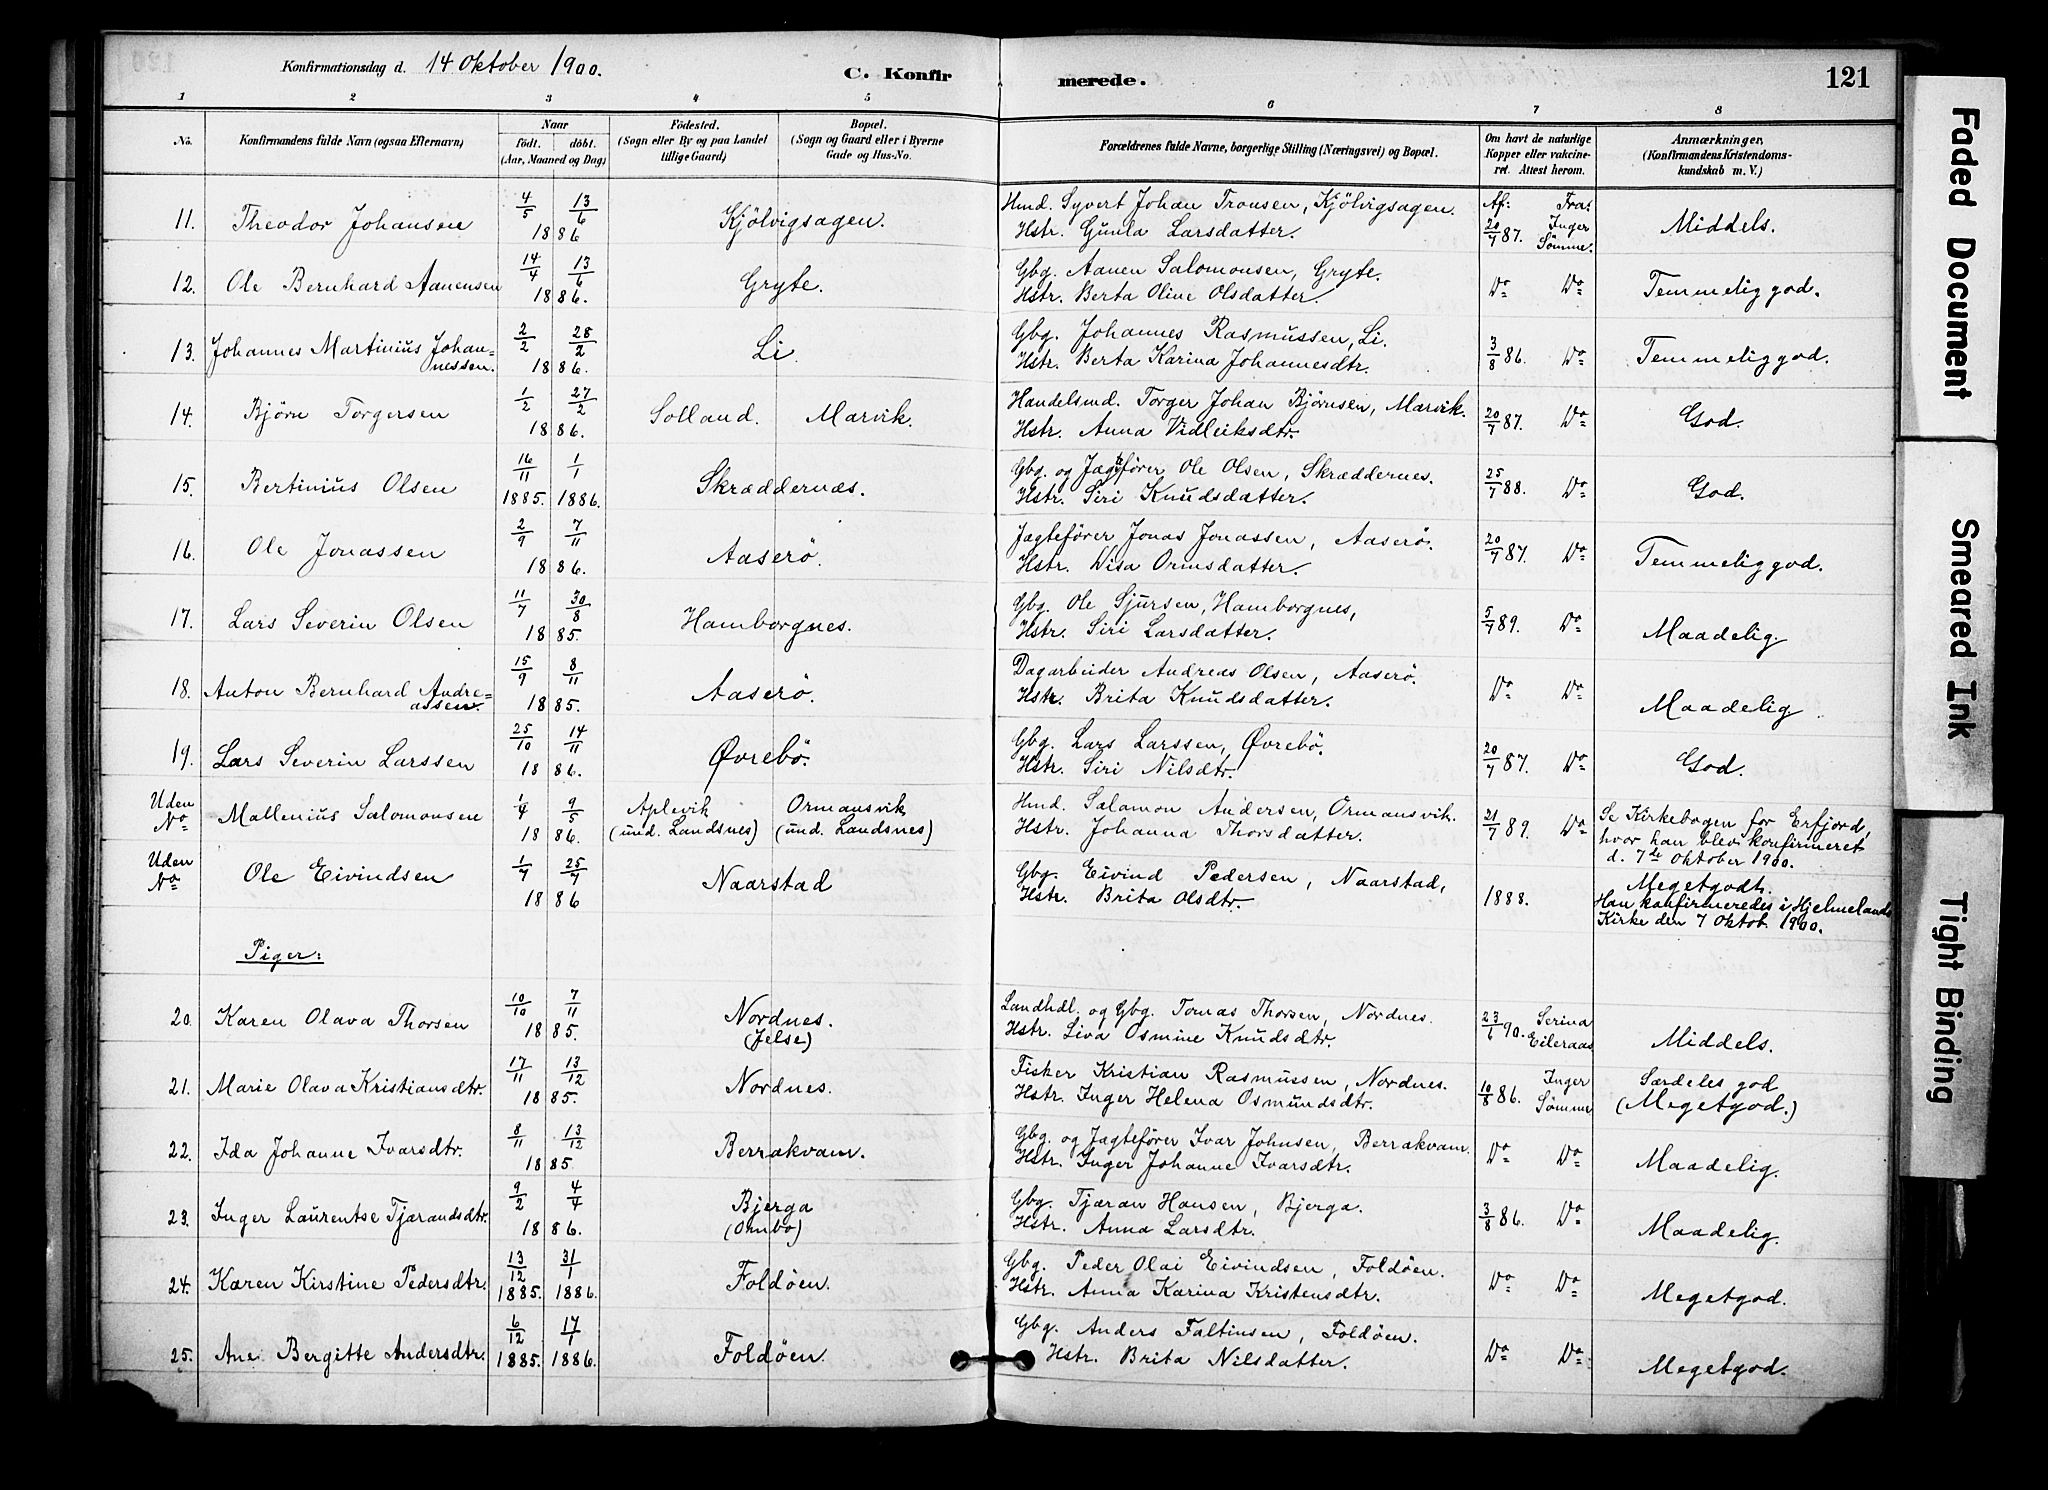 Konfirmationsdag d. 14 Oktober 1900.
C. Konfirmerede.
121
1 2 3 4 5 6 7 8
No. Konfirmandens fulde Navn (ogsaa Efternavn) Naar födt. döbt. (Aar, Maaned og Dag) Födested. (Sogn eller By og paa Landet tillige Gaard) Bopæl. (Sogn og Gaard eller i Byerne Gade og Hus-No. Forældrenes fulde Navne, borgerlige Stilling (Næringsvei) og Bopæl. Om havt de naturlige Kopper eller vakcineret. Attest herom. Anmærkninger, (Konfirmandens Kristendomskundskab m. V.)
11. Theodor Johansen 4/5 13/6 1886 Kjölvigsagen. Hmd. Syvert Johan Tronsen, Kjölvigsagen. Af: 20/7 87. Fra: Inger Sömme. Middels.
Hstr. Gunla Larsdatter.
12. Ole Bernhard Aanensen 14/4 13/6 1886. Gryte. Gbg. Aanen Salomonsen, Gryte. Do Do Temmelig god.
Hstr. Berta Oline Olsdatter.
13. Johannes Martinius Johannessen. 2/2 28/2 1886. Li. Gbg. Johannes Rasmussen, Li. 3/8 86. Do Temmelig god.
Hstr. Berta Karina Johannesdtr.
14. Björn Torgersen 1/2 27/2 1886. Solland. Marvik. Handelsmd. Torger Johan Björnsen, Marvik. 20/7 87. Do God.
Hstr. Anna Vidleiksdtr.
15. Bertinius Olsen 16/11 1885. 1/1 1886. Skræddernæs. Gbg. og Jagtfører Ole Olsen, Skræddernes. 25/7 88. Do God.
Hstr. Siri Knudsdatter.
16. Ole Jonassen 2/9 7/11 1886. Aaserö. Jagtefører Jonas Jonassen, Aaserö. 20/7 87. Do Temmelig god.
Hstr. Wisa Ormsdatter.
17. Lars Severin Olsen 11/7 30/8 1885. Hamborgnes. Gbg. Ole Sjursen, Hamborgnes, 5/7 89. Do Maadelig.
Hstr. Siri Larsdatter.
18. Anton Bernhard Andreassen. 15/9 8/11 1885. Aaserö. Dagarbeider Andreas Olsen, Aaserö. Do Do Maadelig
Hstr. Brita Knudsdatter.
19. Lars Severin Larssen 25/10 14/11 1886. Øvrebö. Gbg. Lars Larssen, Øvrebö. 20/7 87. Do God.
Hstr. Siri Nilsdtr.
Uden No Mallenius Salomonsen 1/4 9/5 1886. Aplevik (und. Landsnes) Ormansvik (und. Landsnes) Hmd. Salamon Andersen, Ormansvik. 21/7 89. Do Se Kirkebogen for Erfjord,
Hstr. Johanna Thorsdatter. hvor han blev konfirmeret
d. 7de Oktober 1900.
Uden No Ole Eivindsen 1/7 25/7 1886 Naarstad Gbg. Eivind Pedersen, Naarstad, 1888. Megetgodt.
Hstr. Brita Olsdtr. Han konfirmeredes i Hjelmelands
Kirke den 7 Oktob. 1900.
Piger:
20. Karen Olava Thorsen 10/10 7/11 1885. Nordnes. (Jelse) Landhdl. og Gbg. Tomas Thorsen, Nordnes. 23/6 90. Serina Eileraas Middels.
Hstr. Liva Osmine Knudsdtr.
21. Marie Olava Kristiansdtr. 17/11 13/12 1885. Nordnes. Fisker Kristian Rasmussen, Nordnes. 10/8 86. Inger Sömme Særdeles god
Hstr. Inger Helena Osmundsdtr. (Megetgod.)
22. Ida Johanne Ivarsdtr. 8/11 13/12 1885. Berrakvam. Gbg. og Jagtefører Ivar Johnsen, Berrakvam. Do Do Maadelig.
Hstr. Inger Johanne Ivarsdtr.
23. Inger Laurentse Tjærandsdtr. 9/2 4/4 1886. Bjerga (Ombo) Gbg. Tjæran Hansen, Bjerga. 3/8 86. Do Maadelig.
Hstr. Anna Larsdtr.
24. Karen Kirstine Pedersdtr. 13/12 1885. 31/1 1886. Foldöen. Gbg. Peder Olai Eivindsen, Foldöen. Do Do Megetgod.
Hstr. Anna Karina Kristensdtr.
25. Ane Bergitte Andersdtr. 6/12 1885. 17/1 1886. Foldöen. Gbg. Anders Faltinsen, Foldöen. Do Do Megetgod.
Hstr. Brita Nilsdatter.
Faded Document
Smeared Ink
Tight Binding